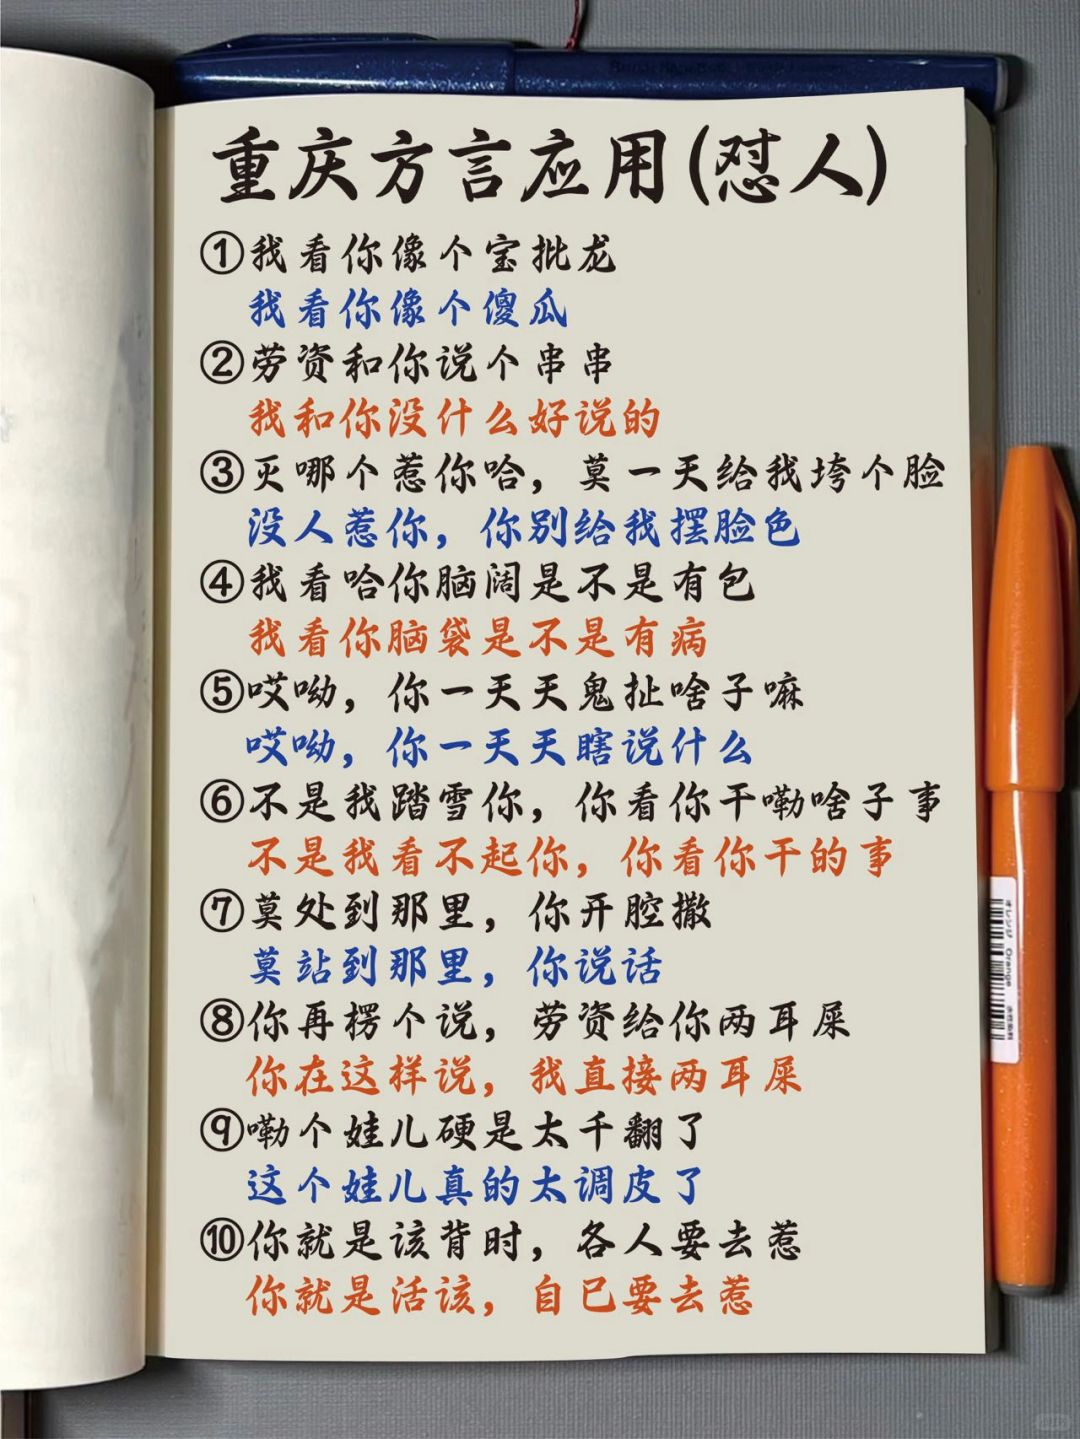 重庆方言应用(怼人)
①我看你像个宝批龙
我看你像个傻瓜
②劳资和你说个串串
我和你没什么好说的
③灭哪个惹你哈，莫一天给我垮个脸
没人惹你，你别给我摆脸色
④我看哈你脑阔是不是有包
我看你脑袋是不是有病
⑤哎呦，你一天天鬼扯啥子嘛
哎呦，你一天天瞎说什么
⑥不是我踏雪你，你看你干嘞啥子事
不是我看不起你，你看你干的事
⑦莫处到那里，你开腔撒
莫站到那里，你说话
⑧你再楞个说，劳资给你两耳屎
你在这样说，我直接两耳屎
⑨嘞个娃儿硬是太千翻了
这个娃儿真的太调皮了
⑩你就是该背时，各人要去惹
你就是活该，自己要去惹
オレンジ Orange